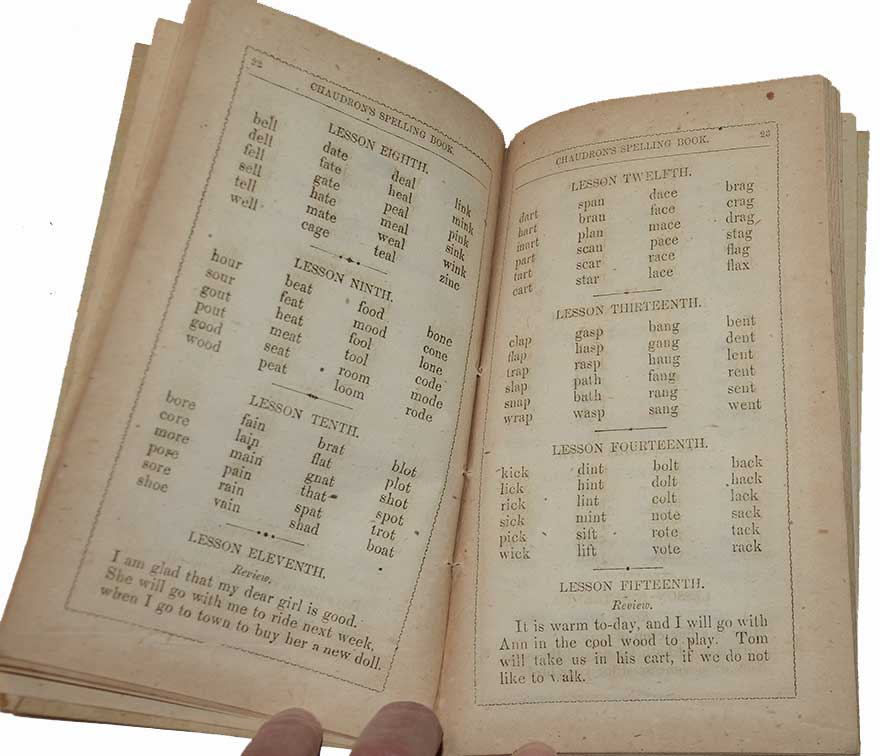 22
CHAUDRON'S SPELLING BOOK.
LESSON EIGHTH.
bell date deal link
dell fate heal mink
fell gate peal pink
sell hate meal sink
tell mate weal wink
well cage teal zinc
LESSON NINTH.
hour beat food bone
sour feat mood cone
gout heat fool lone
pout meat tool code
good seat room mode
wood peat loom rode
LESSON TENTH.
bore fain brat blot
core lain flat plot
more main gnat shot
pose pain that spot
sore rain spat trot
shoe vain shad boat
LESSON ELEVENTH.
Review.
I am glad that my dear girl is good.
She will go with me to ride next week,
when I go to town to buy her a new doll.
CHAUDRON'S SPELLING BOOK. 23
LESSON TWELFTH.
dart span dace brag
hart bran face crag
mart plan mace drag
part scan pace stag
tart scar race flag
cart star lace flax
LESSON THIRTEENTH.
clap gasp bang bent
flap hasp gang dent
trap rasp hang lent
slap path fang rent
snap bath rang sent
wrap wasp sang went
LESSON FOURTEENTH.
kick dint bolt back
lick hint dolt hack
rick lint colt lack
sick mint note sack
pick sift rote tack
wick lift vote rack
LESSON FIFTEENTH.
Review.
It is warm to-day, and I will go with
Ann in the cool wood to play. Tom
will take us in his cart, if we do not
like to walk.